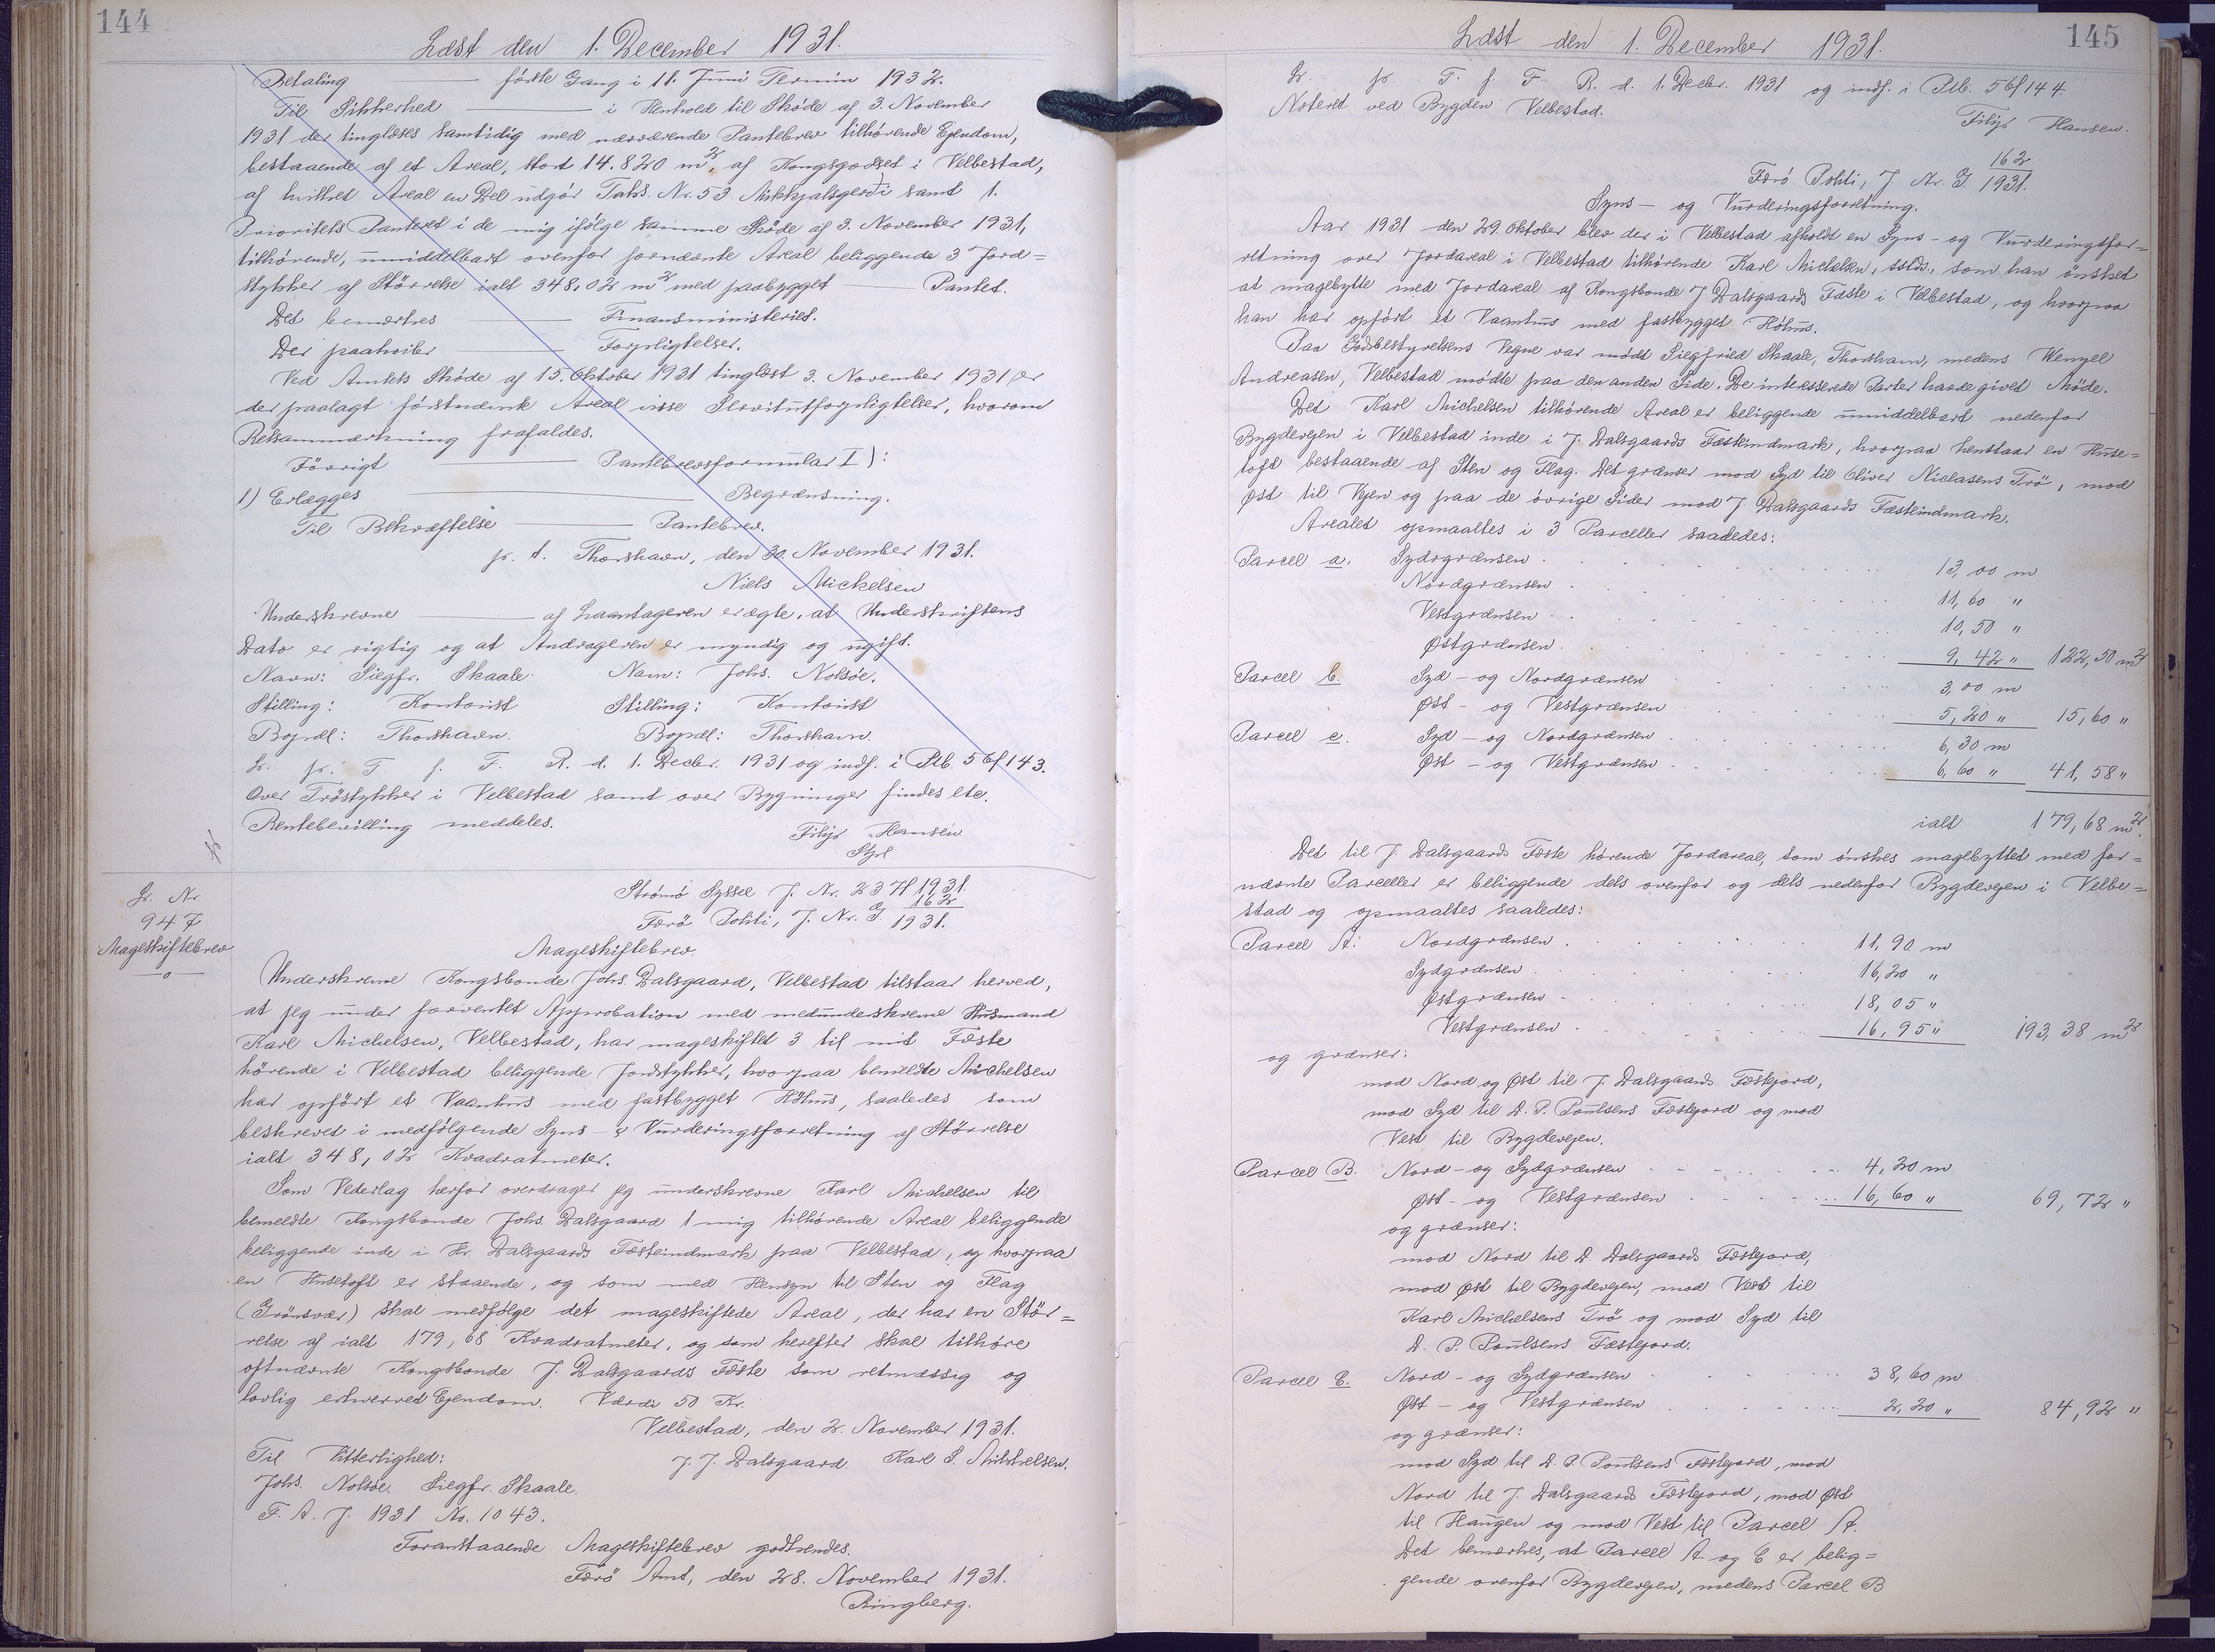 144
Læst den 1. December 1931.
Betaling — første Gang i 11. Juni Termin 1932.
Til Sikkerhed — i Henhold til Skøde af 3. November
1931 der tinglæses samtidig med nærværende Pantebrev tilhørende Ejendom,
bestaaende af et Areal, stort 14.820 m², af Kongsgodset i Velbestad,
af hvilket Areal en Del udgør Taks. Nr. 53 Mikkjalsgerði samt 1.
Prioritets Panteret i de mig ifølge samme Skøde af 3. November 1931,
tilhørende, umiddelbart ovenfor fornævnte Areal beliggende 3 Jord=
stykker af Størrelse ialt 348,02 m² med paabygget — Pantet.
Det bemærkes — Finansministeriet.
Der paahviler — Forpligtelser.
Ved Amtets Skøde af 15. Oktober 1931 tinglæst 3. November 1931 er
der paalagt førstnævnte Areal visse Servitutforpligtelser, hvorom
Retsanmærkning frafaldes.
Iøvrigt — Pantebrevsformular I):
1) Erlægges — Begrænsning.
Til Bekræftelse — Pantebrev.
p. t. Thorshavn, den 30. November 1931.
Niels Mickelsen
Underskrevne — af Laantageren ægte, at Underskriftens
Dato er rigtig og at Andrageren er myndig og ugift.
Navn: Siegfr. Skaale. Navn: Johs. Nolsøe.
Stilling: Kontorist Stilling: Kontorist
Bopæl: Thorshavn. Bopæl: Thorshavn.
L. p. T. f. F. R. d. 1. Decbr. 1931 og indf. i Ptb. 56/143.
Over Trøstykker i Velbestad samt over Bygninger findes etc.
Rentebevilling meddeles.
Filip Hansen
Stpl.
L. Nr.
947
Mageskiftebrev
—o—
Strømø Syssel J. Nr. 237/1931.
Færø Politi, J. Nr. G 162/1931.
Mageskiftebrev.
Underskrevne Kongsbonde Johs. Dalsgaard, Velbestad tilstaar herved,
at jeg under forventet Approbation med medunderskrevne Husmand
Karl Michelsen, Velbestad, har mageskiftet 3 til mit Fæste
hørende i Velbestad beliggende Jordstykker, hvorpaa bemeldte Michelsen
har opført et Vaanhus med fastbygget Høhus, saaledes som
beskrevet i medfølgende Syns- & Vurderingsforretning af Størrelse
ialt 348,02 Kvadratmeter.
Som Vederlag herfor overdrager jeg underskrevne Karl Michelsen til
bemeldte Kongsbonde Johs. Dalsgaard 1 mig tilhørende Areal beliggende
beliggende inde i Hr. Dalsgaards Fæsteindmark paa Velbestad, og hvorpaa
en Husetoft er staaende, og som med Hensyn til Sten og Flag
(Grønsvær) skal medfølge det mageskiftede Areal, der har en Stør=
relse af ialt 179,68 Kvadratmeter, og som herefter skal tilhøre
oftnævnte Kongsbonde J. Dalsgaards Fæste som retmæssig og
lovlig erhvervet Ejendom. Værdi 50 Kr.
Velbestad, den 2. November 1931.
Til Vitterlighed: J. J. Dalsgaard. Karl S. Mikkelsen.
Johs. Nolsøe. Siegfr. Skaale.
F. A. J. 1931 No. 1043.
Foranstaaende Mageskiftebrev godkendes.
Færø Amt, den 28. November 1931.
Ringberg.
145
Læst den 1. December 1931.
L. p. T. f. F. R. d. 1. Decbr. 1931 og indf. i Ptb. 56/144.
Noteret ved Bygden Velbestad.
Filip Hansen.
Færø Politi, J. Nr. G. 162/1931.
Syns- og Vurderingsforretning.
Aar 1931 den 29. Oktober blev der i Velbestad afholdt en Syns- og Vurderingsfor=
retning over Jordareal i Velbestad tilhørende Karl Michelsen, sstds., som han ønsket
at magebytte med Jordareal af Kongsbonde J. Dalsgaards Fæste i Velbestad, og hvorpaa
han har opført et Vaanhus med fastbygget Høhus.
Paa Godsbestyrelsens Vegne var mødt Siegfried Skaale, Thorshavn, medens Wenzel
Andreasen, Velbestad mødte paa den anden Side. De interesserede Parter havde givet Møde.
Det Karl Michelsen tilhørende Areal er beliggende umiddelbart nedenfor
Bygdevejen i Velbestad inde i J. Dalsgaards Fæsteindmark, hvorpaa henstaar en Huse=
toft bestaaende af Sten og Flag. Det grænser mod Syd til Oliver Niclasens Trø, mod
Øst til Vejen og paa de øvrige Sider mod J. Dalsgaards Fæsteindmark.
Arealet opmaaltes i 3 Parceller saaledes:
Parcel a. Sydgrænsen . 13,00 m
Nordgrænsen . 11,60 "
Vestgrænsen . 10,50 "
Østgrænsen . 9,42 " 122,50 m²
Parcel b. Syd- og Nordgrænsen 3,00 m
Øst- og Vestgrænsen 5,20 " 15,60 "
Parcel c. Syd- og Nordgrænsen 6,30 m
Øst- og Vestgrænsen 6,60 " 41,58 "
ialt 179,68 m².
Det til J. Dalsgaards Fæste hørende Jordareal, som ønskes magebyttet med for=
nævnte Parceller er beliggende dels ovenfor og dels nedenfor Bygdevejen i Velbe=
stad og opmaaltes saaledes:
Parcel A. Nordgrænsen . 11,90 m
Sydgrænsen . 16,20 "
Østgrænsen . 18,05 "
Vestgrænsen . 16,95 " 193,38 m²
og grænser:
mod Nord og Øst til J. Dalsgaards Fæstejord,
mod Syd til D. P. Poulsens Fæstejord og mod
Vest til Bygdevejen.
Parcel B. Nord- og Sydgrænsen 4,20 m
Øst- og Vestgrænsen 16,60 " 69,72 "
og grænser:
mod Nord til D. Dalsgaards Fæstejord,
mod Øst til Bygdevejen, mod Vest til
Karl Michelsens Trø og mod Syd til
D. P. Poulsens Fæstejord.
Parcel C. Nord- og Sydgrænsen 38,60 m
Øst- og Vestgrænsen 2,20 " 84,92 "
og grænser:
mod Syd til D. P. Poulsens Fæstejord, mod
Nord til J. Dalsgaards Fæstejord, mod Øst
til Haugen og mod Vest til Parcel A.
Det bemærkes, at Parcel A og C er belig=
gende ovenfor Bygdevejen, medens Parcel B